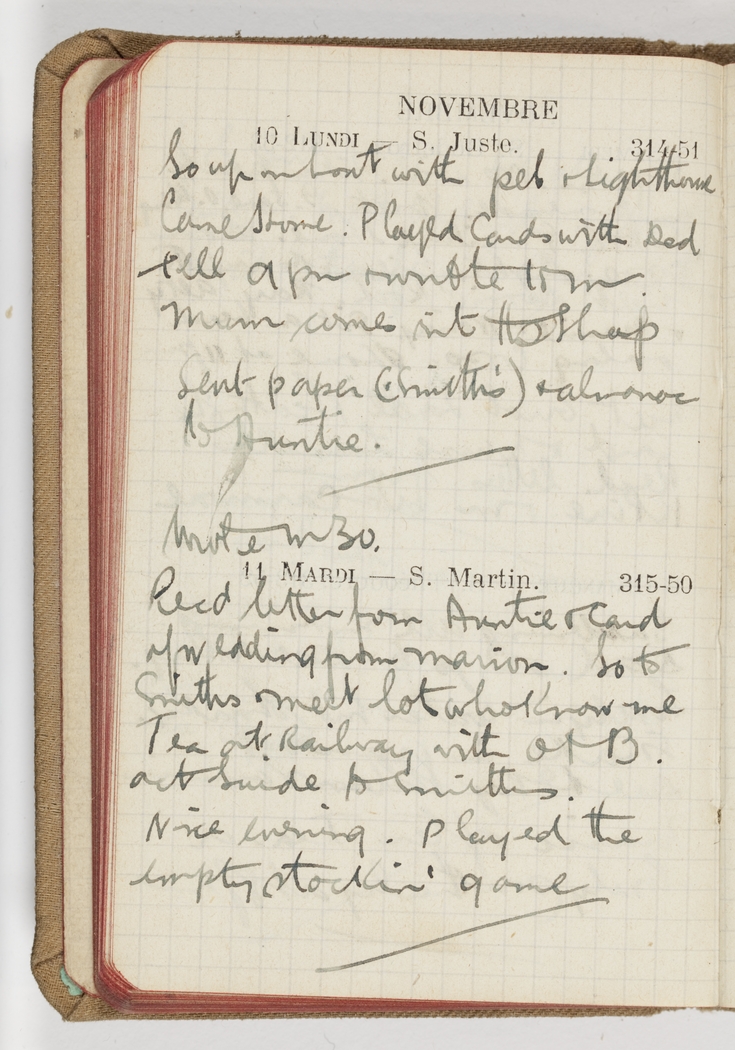 NOVEMBRE
10 LUNDI — S. Juste. 314-51
Go up on boat with pel & Lighthouse
Came Home. Played Cards with Ded
tell &
Mum comes into the Shop
Sent paper (Smith's) & almanac
to Auntie.
Wrote m 30.
11 MARDI — S. Martin. 315-50
Recd letter from Auntie & Card
of wedding from Marion. Go to
Smiths & meet lot who know me
Tea at Railway with O & B.
act Guide to Smiths.
Nice evening. Played the
empty stockin' game